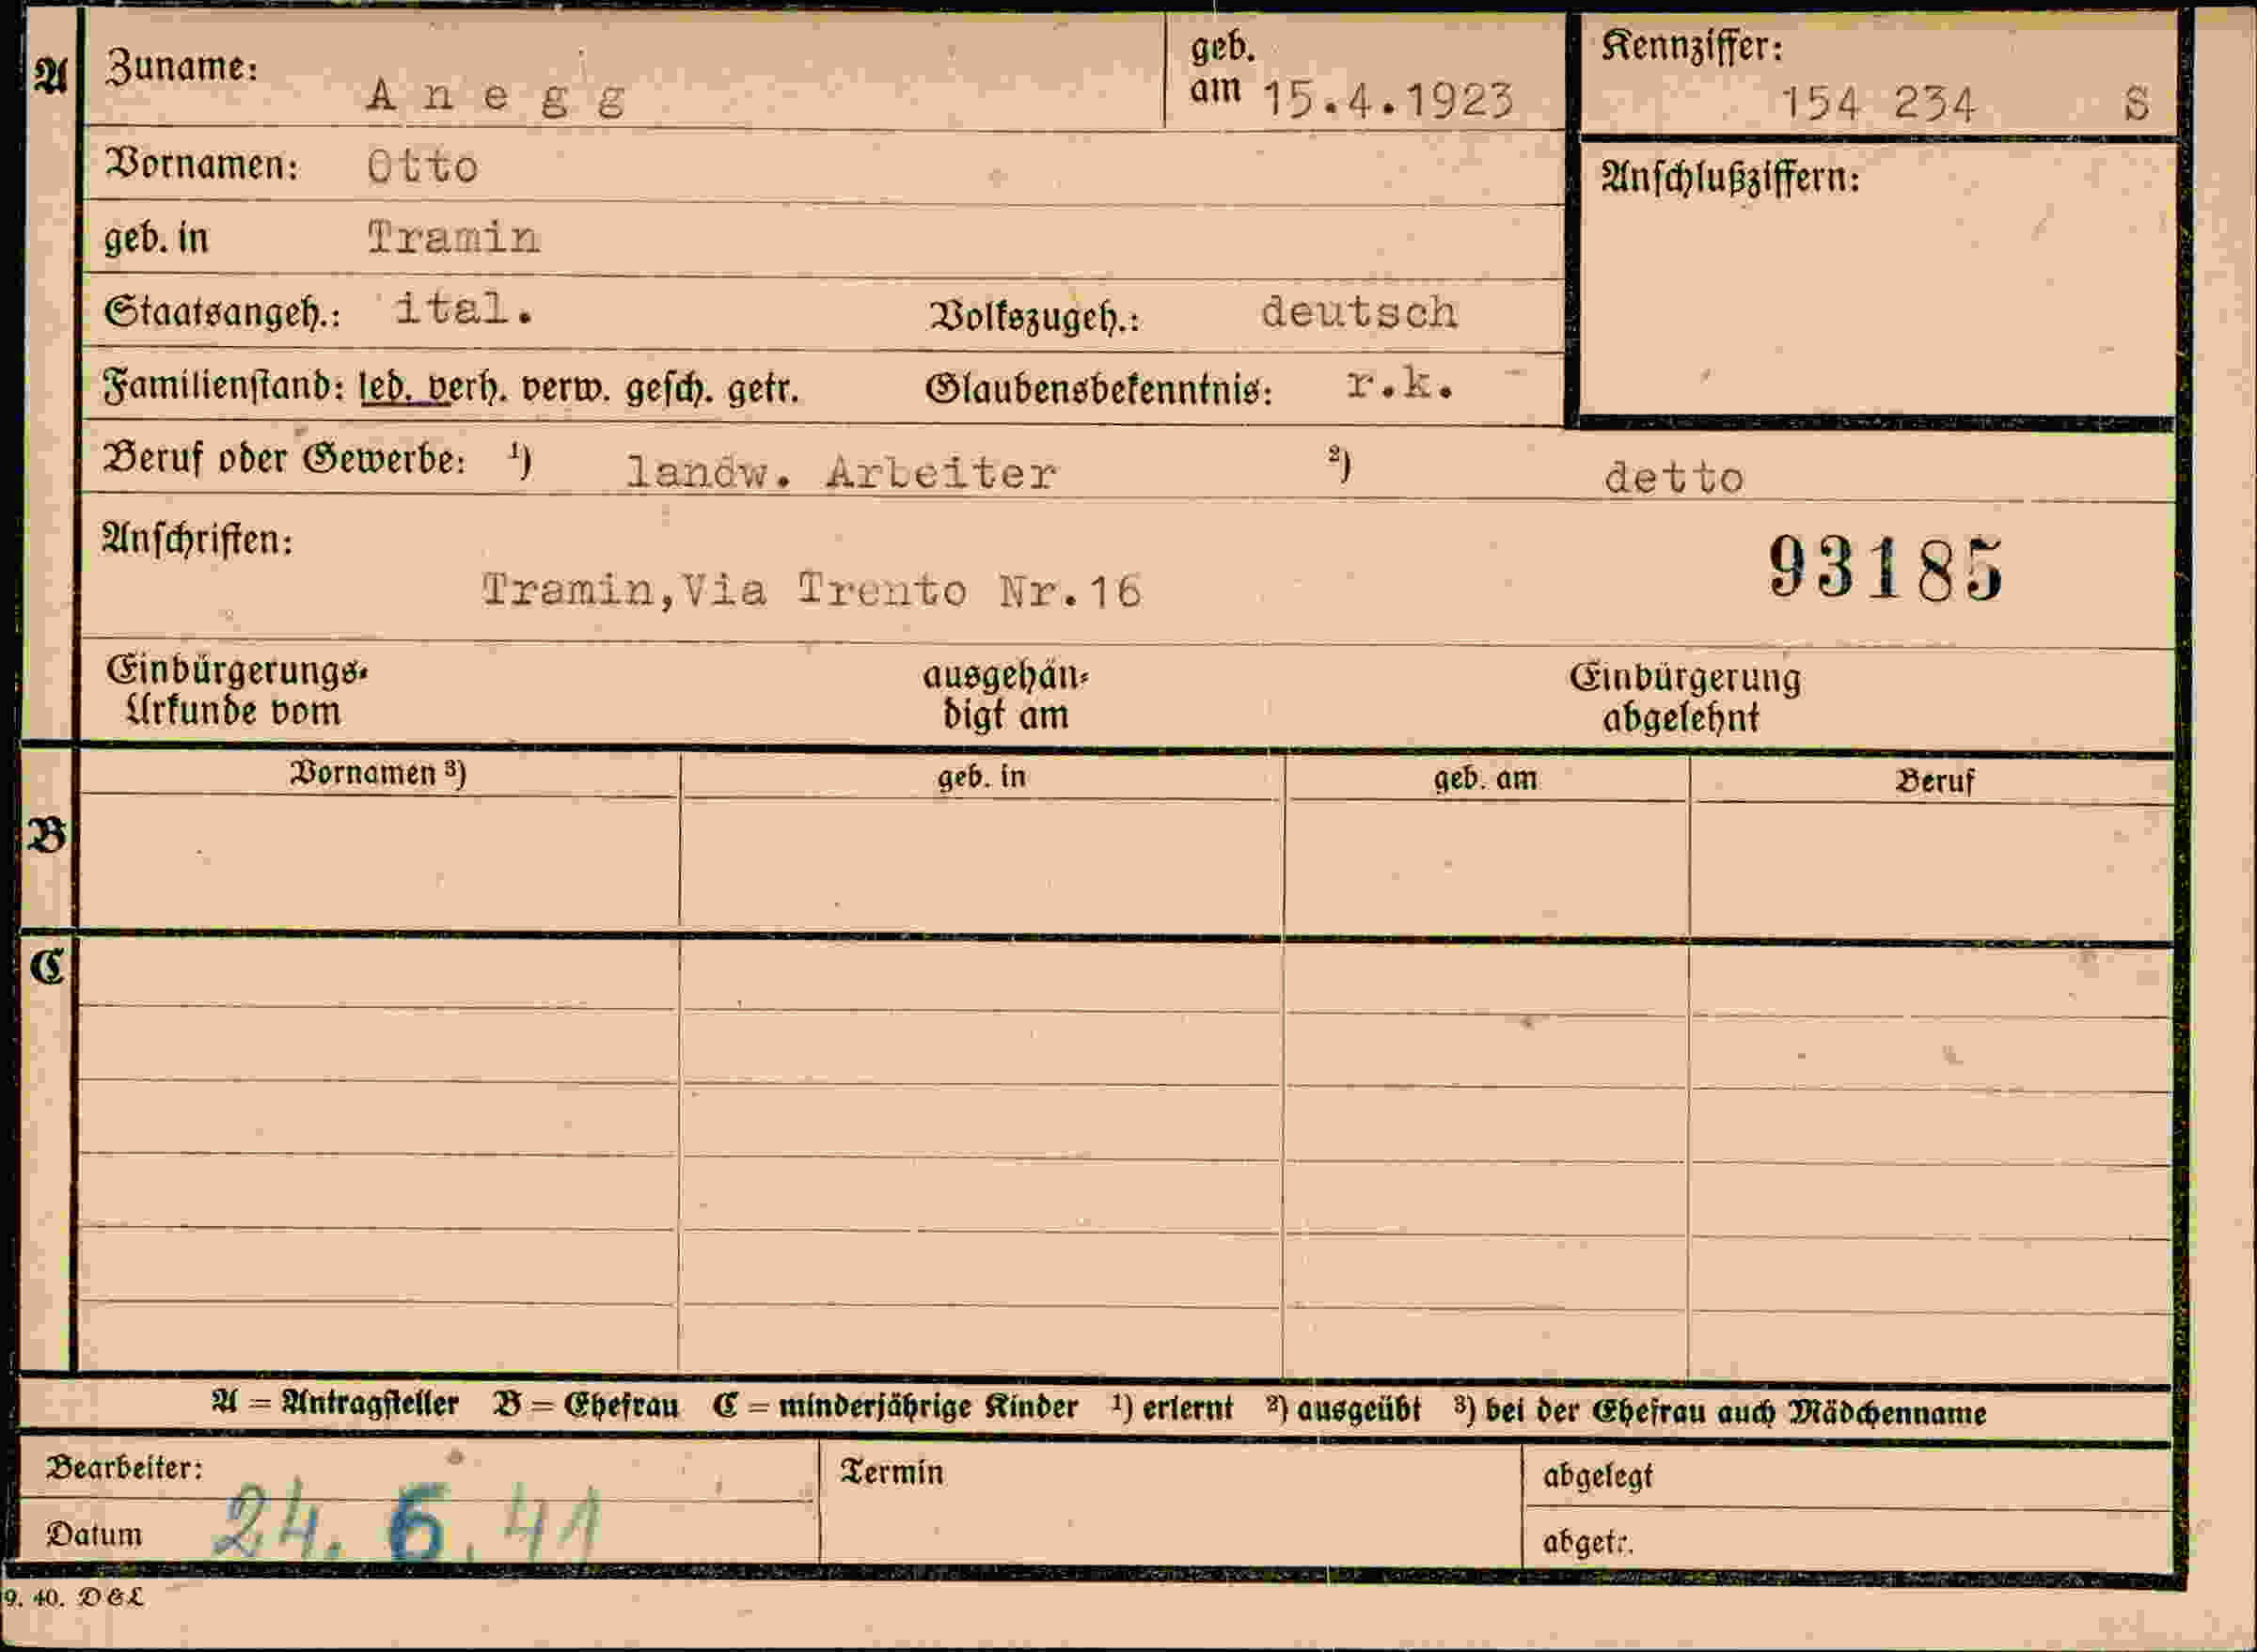 A Zuname: Anegg geb. am 15.4.1923 Kennziffer: 154 234 S
Vornamen: Otto Anschlußziffern:
geb. in Tramin
Staatsangeh.: ital. Volkszugeh.: deutsch
Familienstand: led. verh. verw. gesch. getr. Glaubensbekenntnis: r.k.
Beruf oder Gewerbe: 1) landw. Arbeiter 2) detto
Anschriften: 93185
Tramin,Via Trento Nr.16
Einbürgerungs- ausgehän- Einbürgerung
Urkunde vom digt am abgelehnt
Vornamen 3) geb. in geb. am Beruf
B
C
A = Antragsteller B = Ehefrau C = minderjährige Kinder 1) erlernt 2) ausgeübt 3) bei der Ehefrau auch Mädchenname
Bearbeiter: Termin abgelegt
Datum 24. 6. 41 abgetr.
9. 40. D & L